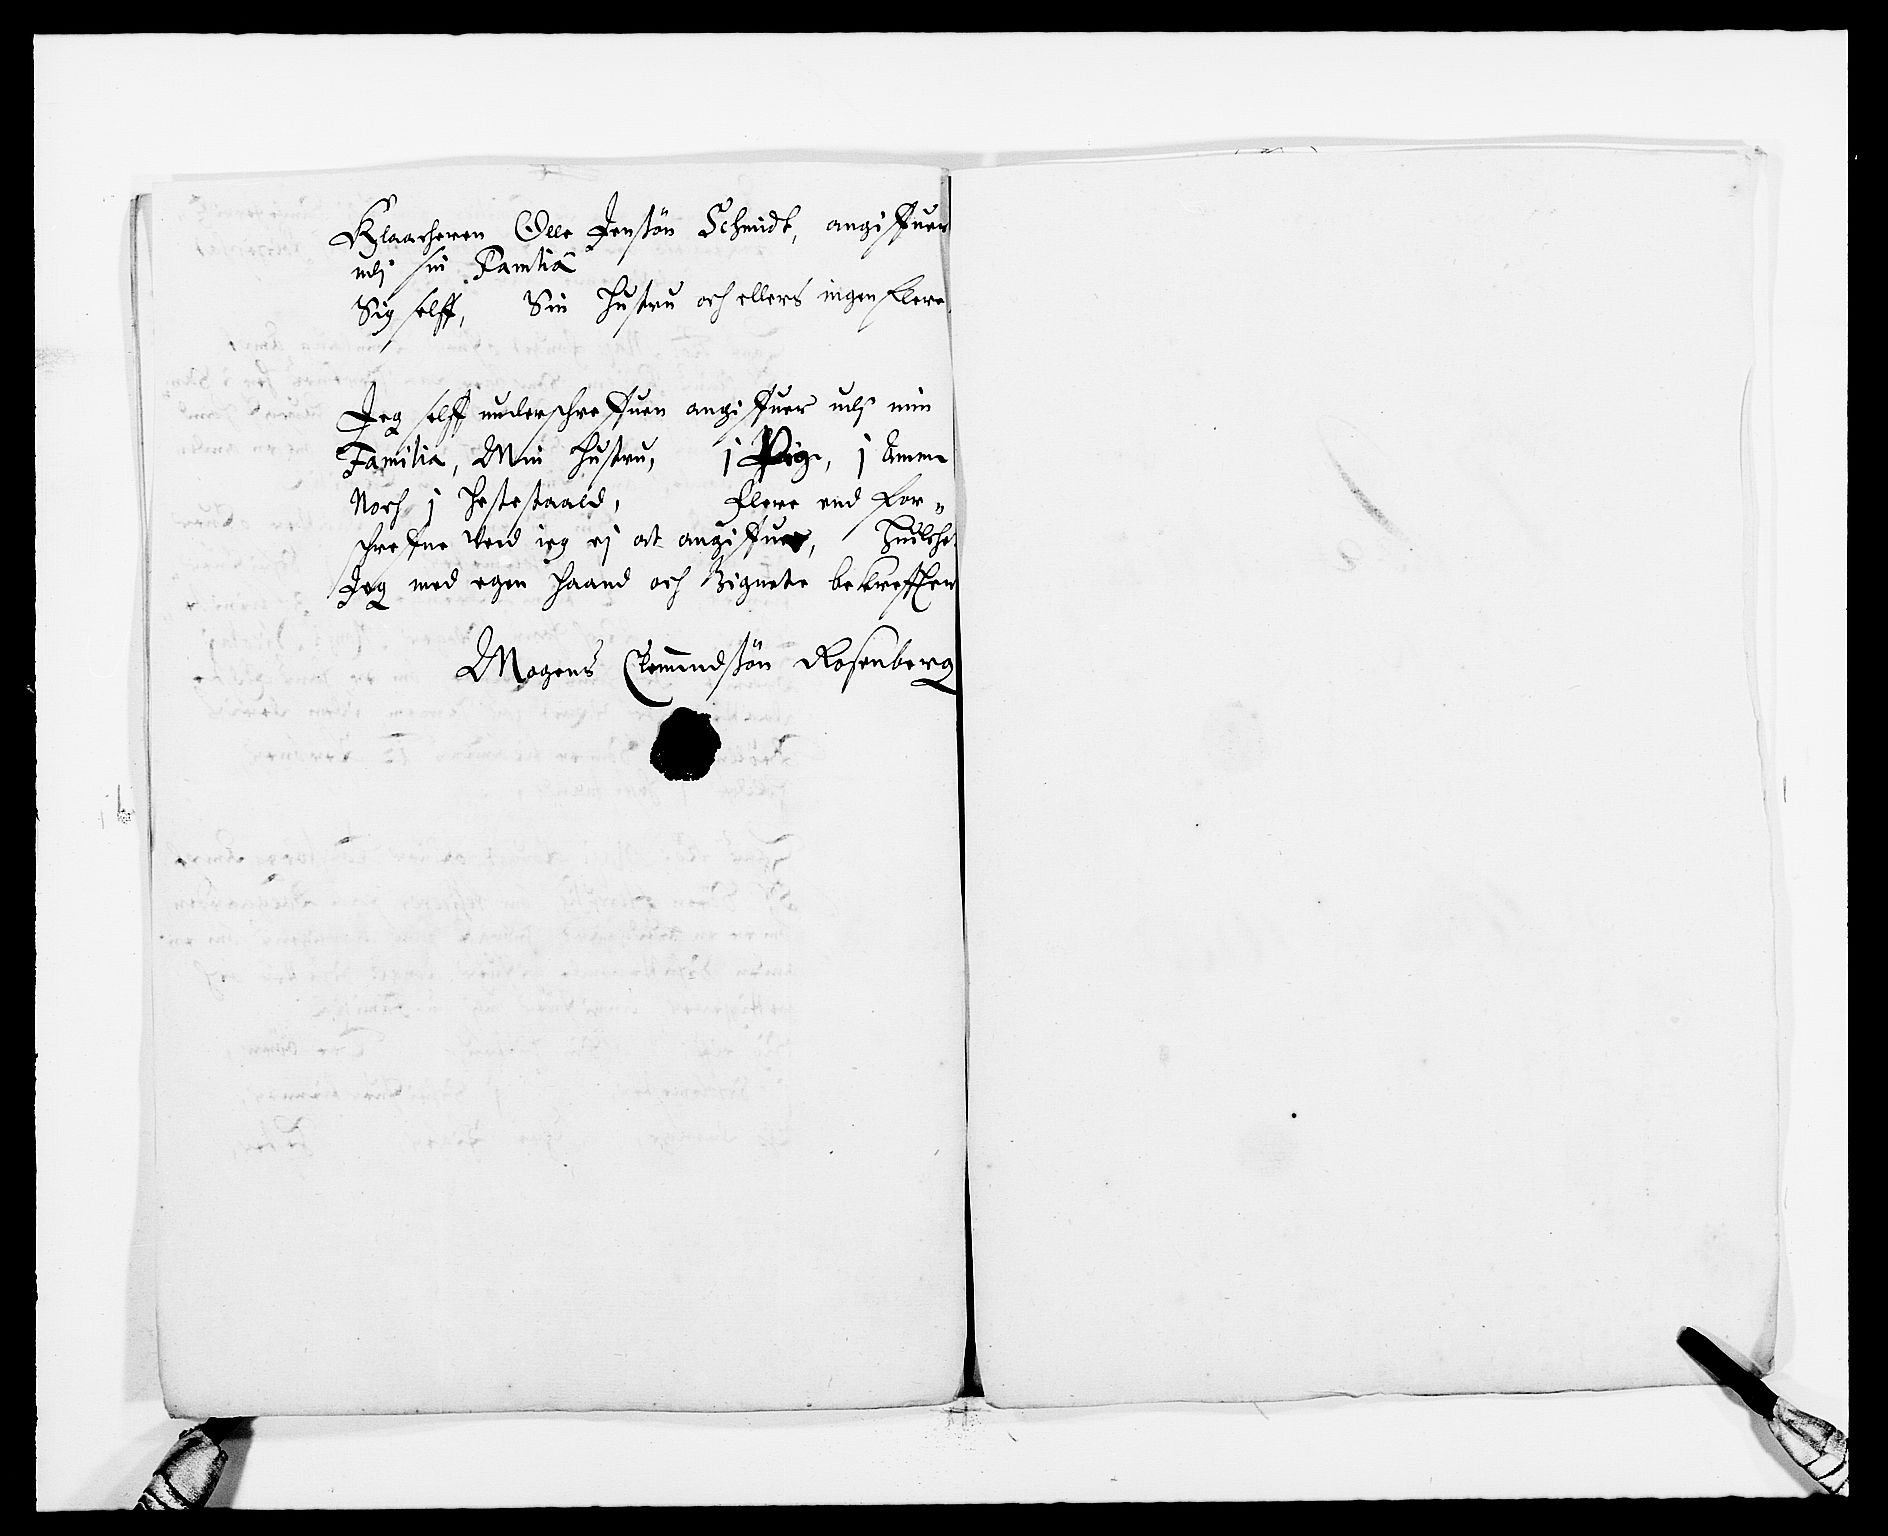 Klacheren Olle Jensøn Schmidt, angiffuer
udj sin Familia
Sig selff, Sin Hustru och ellers ingen flere
Jeg selff underschreffuen angiffuer udj min
Familia, Min Hustru, j Pige, j Amme
Noch j Hestestaald, flere end for-
schrefne ved jeg ej at angiffuer, huilche
Jeg med egen Haand och Zignete bekreffter
Mogens Clemendsøn Rosenberg